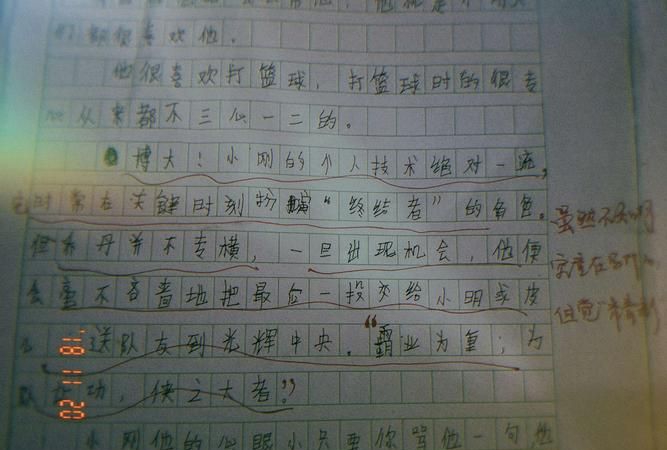 都很喜欢他。
他很喜欢打篮球，打篮球时的很专
心从来都不三心一二的。
博大！小刚的个人技术绝对一流，
他时常在关键时刻扮演“终结者”的角色。
但乔丹并不专横，一旦出现机会，他便
会毫不吝啬地把最后一投交给小明或皮
送队友到光辉中央。“霸业为重；为
功，侠之大者”
小刚他的心眼小只要你骂他一句他
虽然不
实在
但觉
02 11 18